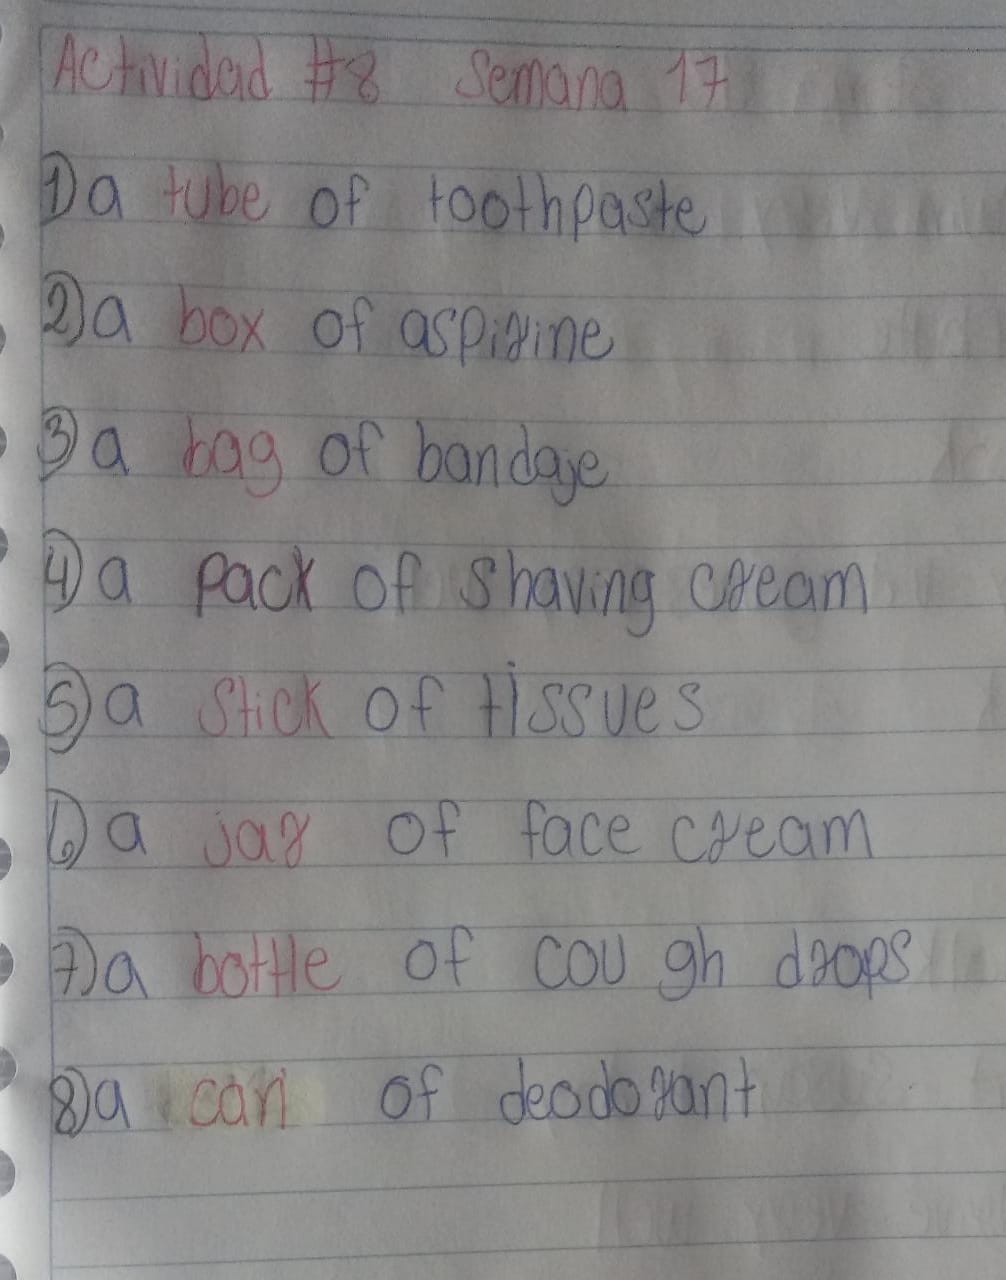 Actividad #8 Semana 17
1) a tube of toothpaste
2) a box of aspirine
3) a bag of bandaje
4) a pack of shaving cream
5) a stick of tissues
6) a jar of face cream
7) a bottle of cou gh drops
8) a can of deodorant